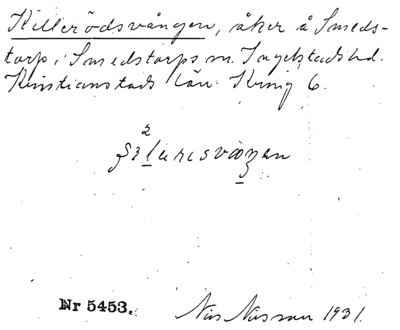 Killerödsvången, åker å Smeds-
torp i Smedstorps sn. Ingelstads hd.
Kristianstads län. Konig 6.
Nr 5453. Nils Nilsson 1931.